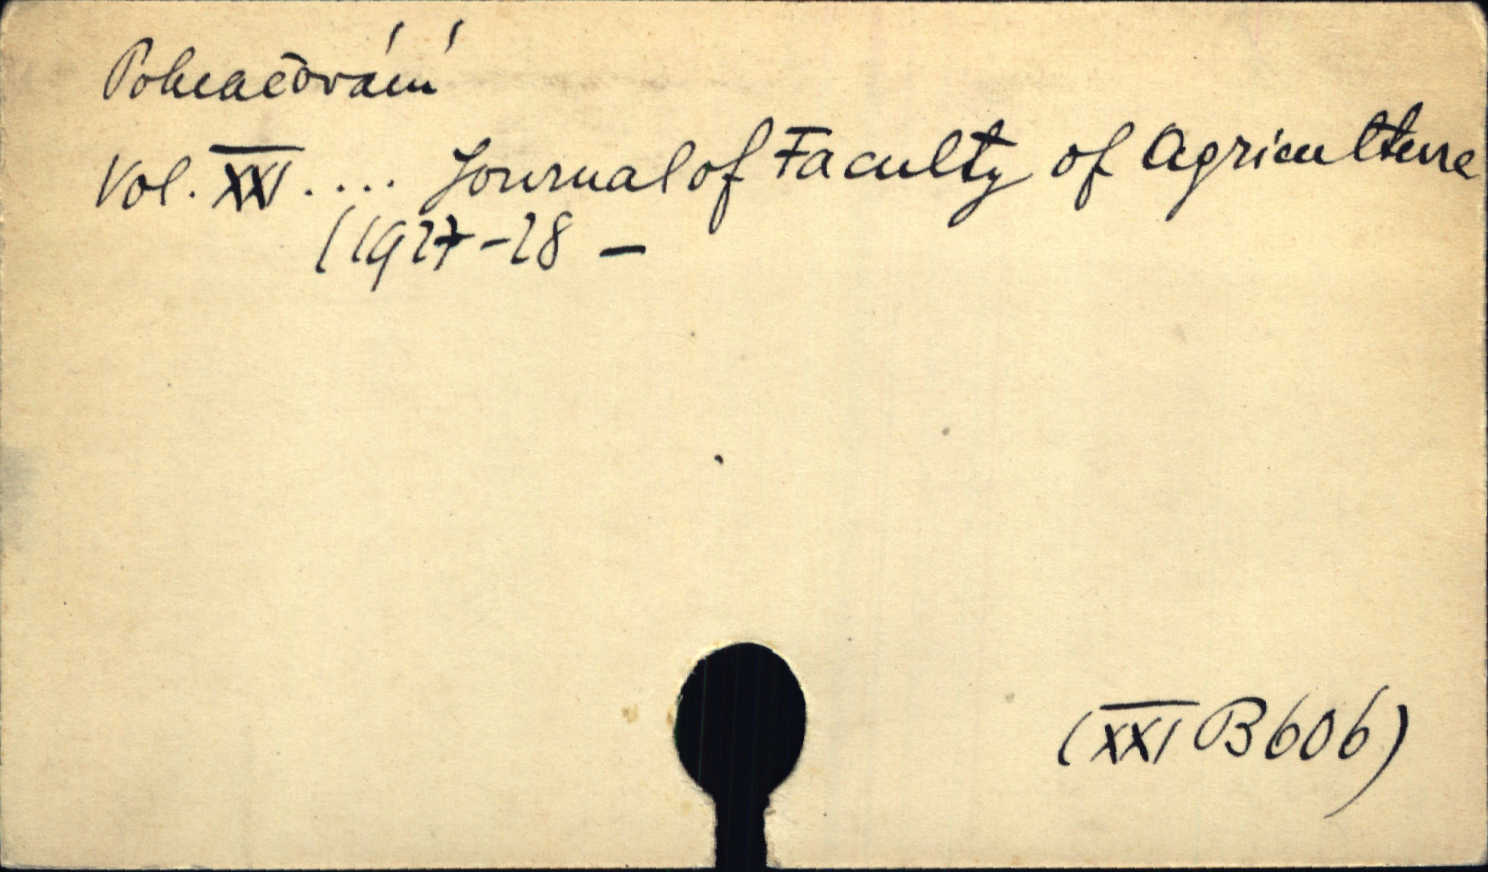 Pokračování
Vol. XXI .... Journal of Faculty of Agriculture
(1927-28 —
(XXI B 606)